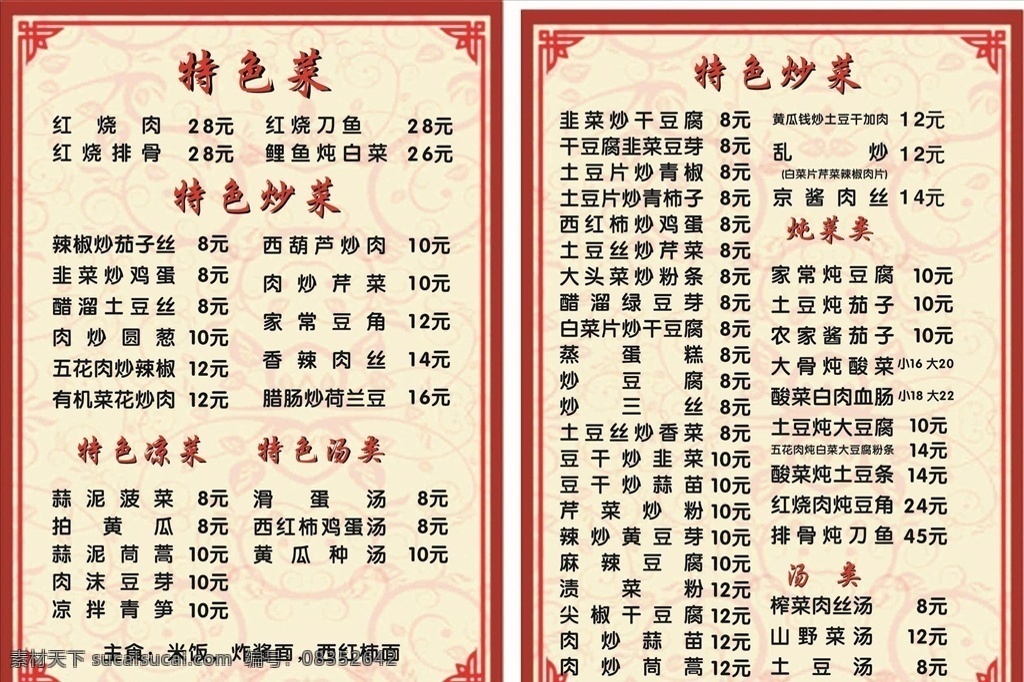 特色菜
红烧肉 28元 红烧刀鱼 28元
红烧排骨 28元 鲤鱼炖白菜 26元
特色炒菜
辣椒炒茄子丝 8元 西葫芦炒肉 10元
韭菜炒鸡蛋 8元 肉炒芹菜 10元
醋溜土豆丝 8元 家常豆角 12元
肉炒圆葱 10元 香辣肉丝 14元
五花肉炒辣椒 12元 腊肠炒荷兰豆 16元
有机菜花炒肉 12元
特色凉菜 特色汤类
蒜泥菠菜 8元 滑蛋汤 8元
拍黄瓜 8元 西红柿鸡蛋汤 8元
蒜泥茼蒿 10元 黄瓜种汤 10元
肉沫豆芽 10元
凉拌青笋 10元
主食：米饭、炸酱面、西红柿面
素材天下 sucaisucai.com 编号：08352642
特色炒菜
韭菜炒干豆腐 8元
干豆腐韭菜豆芽 8元
土豆片炒青椒 8元
土豆片炒青柿子 8元
西红柿炒鸡蛋 8元
土豆丝炒芹菜 8元
大头菜炒粉条 8元
醋溜绿豆芽 8元
白菜片炒干豆腐 8元
蒸蛋糕 8元
炒豆腐 8元
炒三丝 8元
土豆丝炒香菜 8元
豆干炒韭菜 10元
豆干炒蒜苗 10元
芹菜炒粉 10元
辣炒黄豆芽 10元
麻辣豆腐 10元
渍菜粉 12元
尖椒干豆腐 12元
肉炒蒜苗 12元
肉炒茼蒿 12元
黄瓜钱炒土豆干加肉 12元
乱炒 12元
(白菜片芹菜辣椒肉片)
京酱肉丝 14元
炖菜类
家常炖豆腐 10元
土豆炖茄子 10元
农家酱茄子 10元
大骨炖酸菜 小16 大20
酸菜白肉血肠 小18 大22
土豆炖大豆腐 10元
五花肉炖白菜大豆腐粉条 14元
酸菜炖土豆条 14元
红烧肉炖豆角 24元
排骨炖刀鱼 45元
汤类
榨菜肉丝汤 8元
山野菜汤 12元
土豆汤 8元